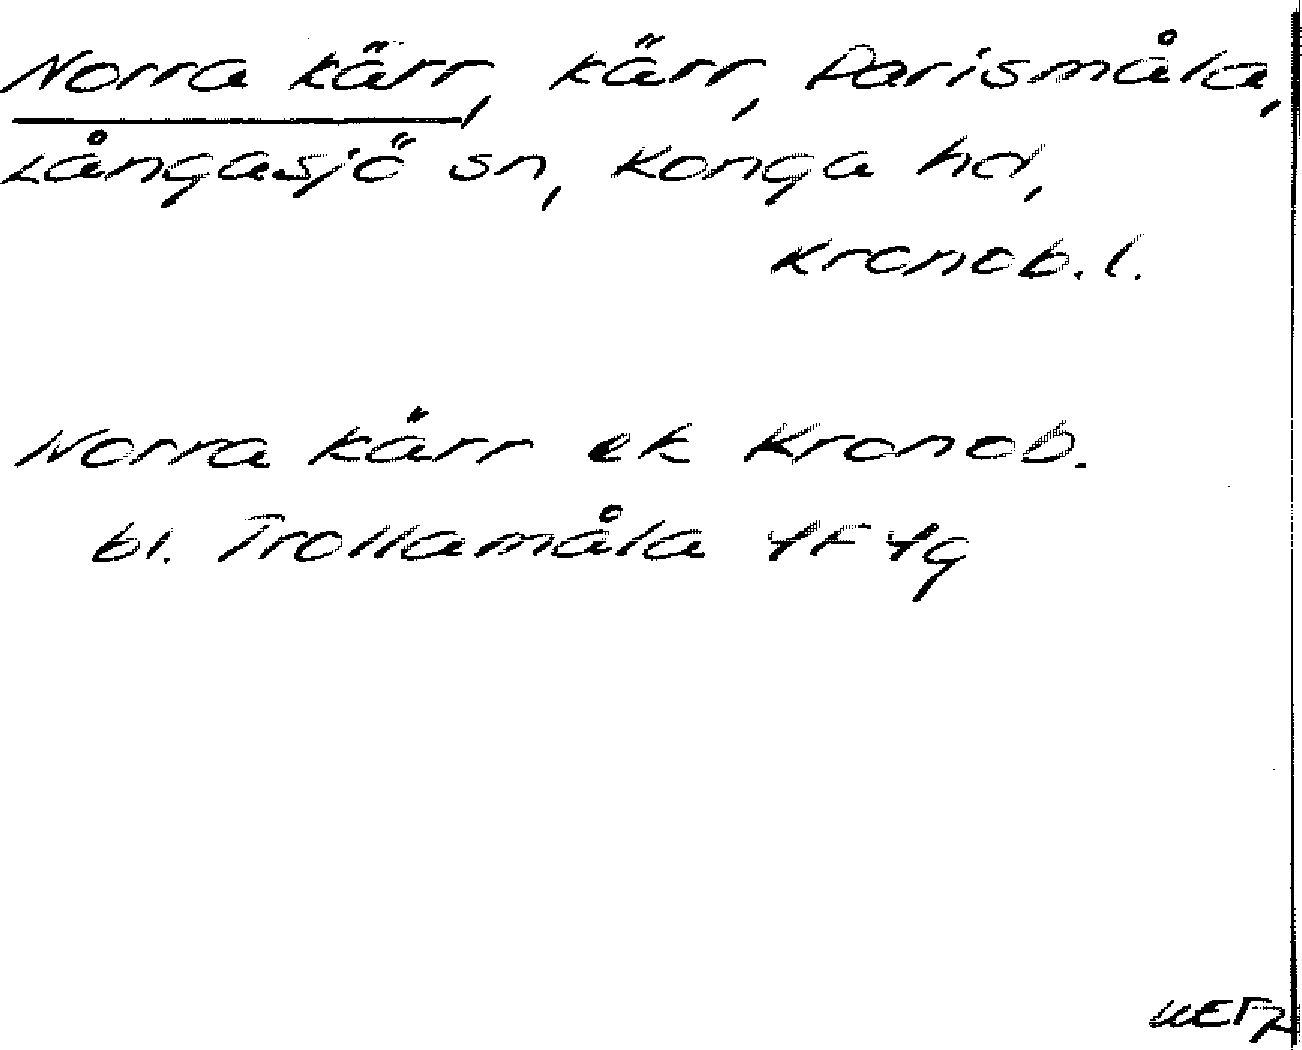 Norra kärr, kärr, Parismåla,
Långasjö sn, Konga hd,
Kronob. l.
Norra kärr ek Kronob.
bl. Trollamåla 4F 4g